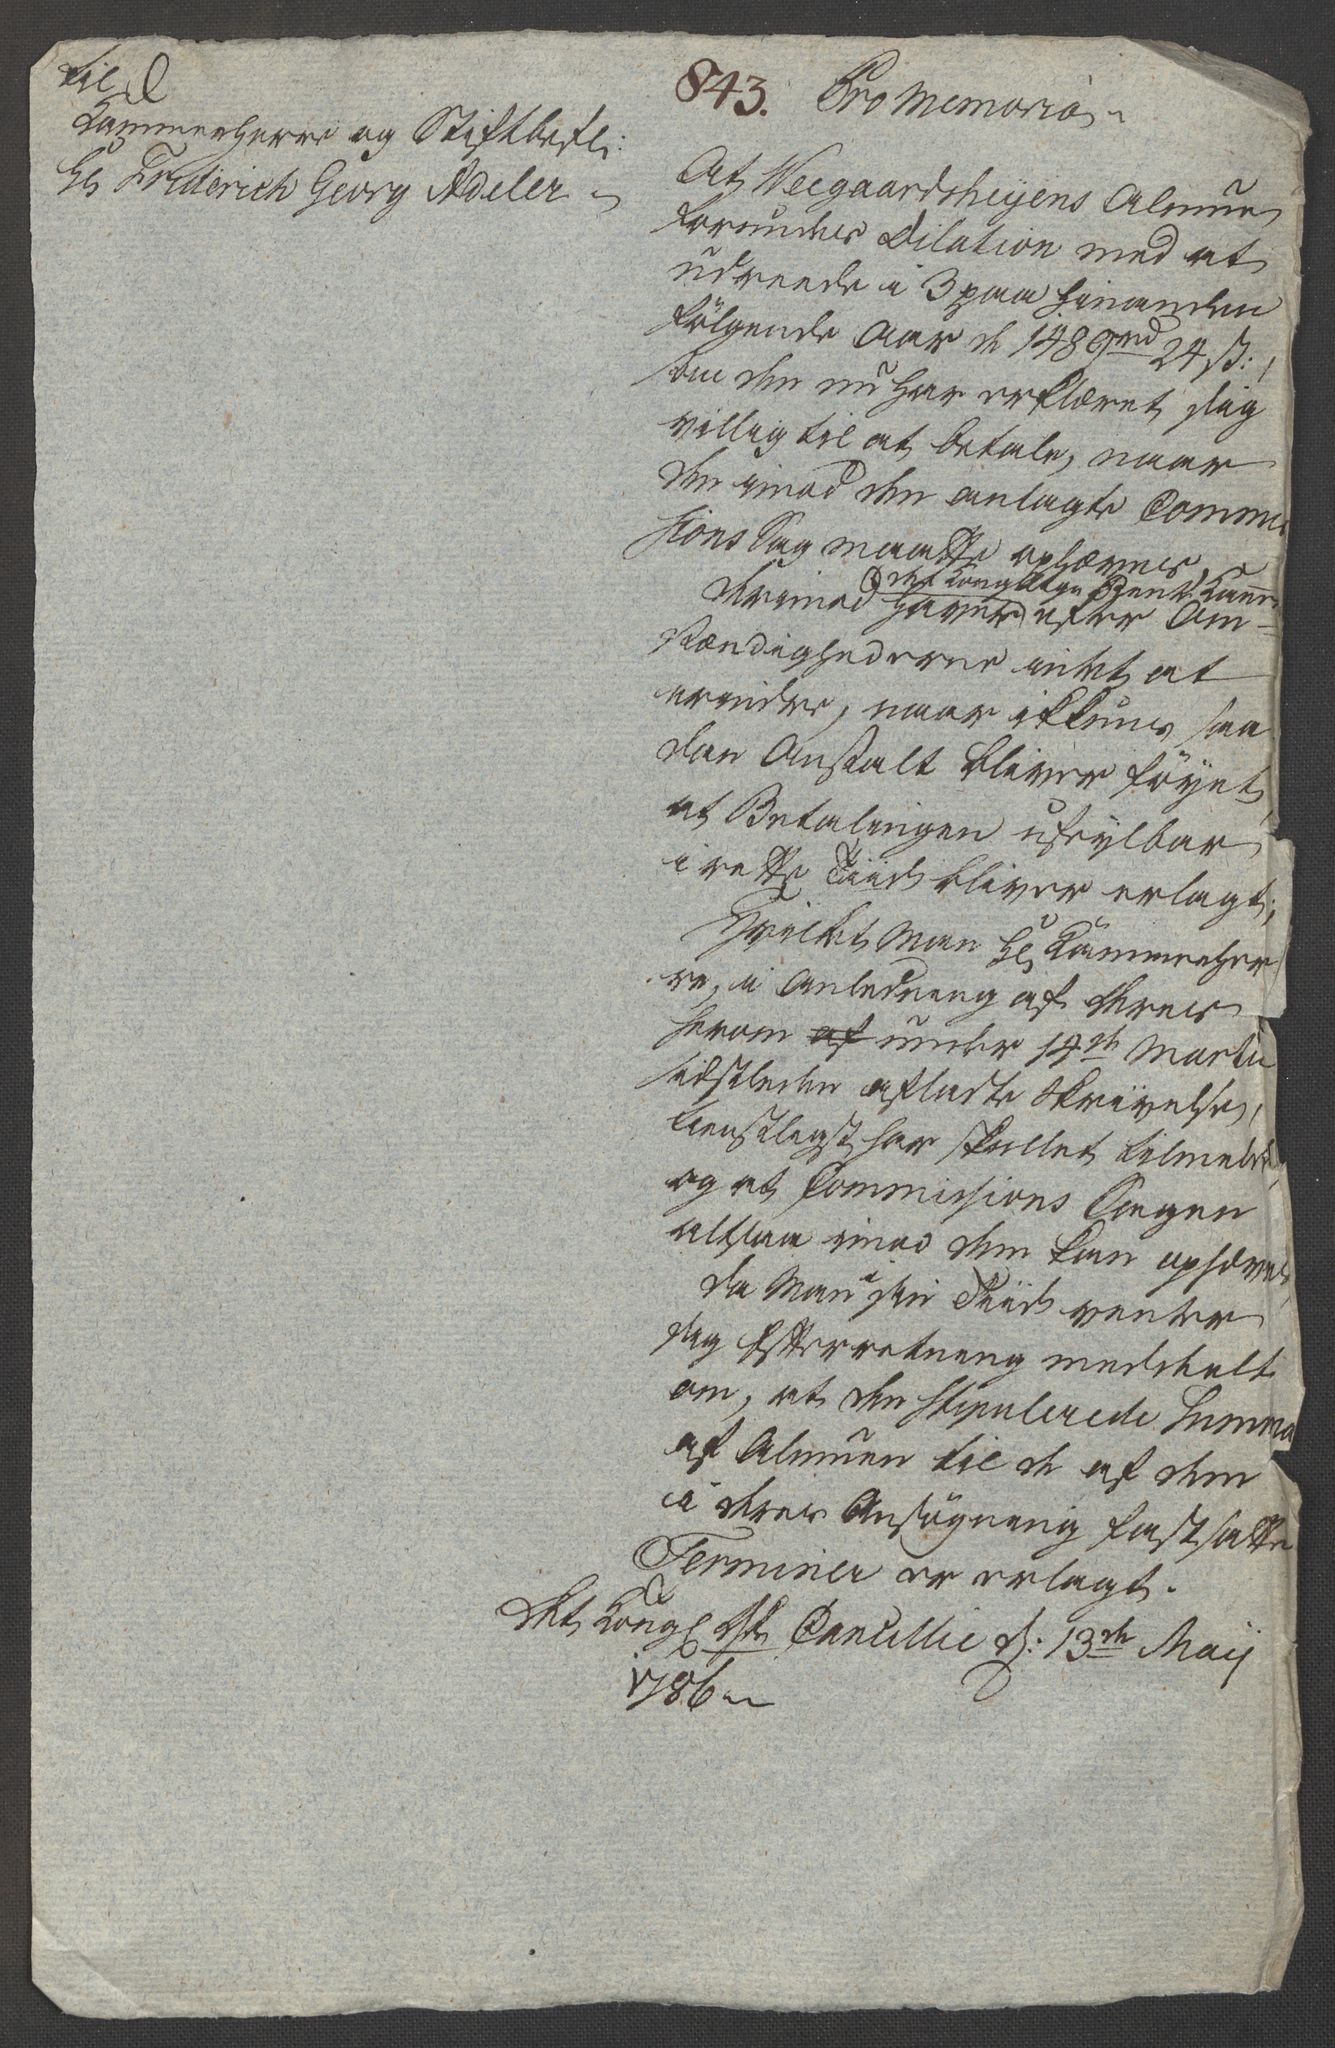 Til
Kammerherre og Stiftbefl:
Hr Friderich Georg Adeler
843. Pro Memoria
At Weegaardsheyens Almue
forundes Dilation med at
udreede i 3 paa hinanden
følgende Aar de 1489 rd 24 s:,
som den nu har erklæret sig
villig til at betale, naar
den imod den anlagte Commis
sions Sag maatte ophæves,
det Kongelige Rente Kammer
derimod haver efter Om-
stændighederne intet at
erindre, naar ikkuns saa
dan Anstalt bliver føyet,
at Betalingen ufeylbar
i rette Tiid bliver erlagt;
Hvilket Man Hr Kammerher
re, i Anledning af deres
herom af under 14de Martii
sidstleden afladte Skrivelse,
tienstligst har skullet tilmelde,
og at Commissions Sagen
altsaa imod dem kan ophæves,
da Man i sin Tiid venter
sig Efterretning meddeelt
om, at den stipulerede Summa
af Almuen til de af dem
i deres Ansøgning fastsatte
Terminer er erlagt.
Det Kongl. Dske Cancellie d: 13de Maij
1786